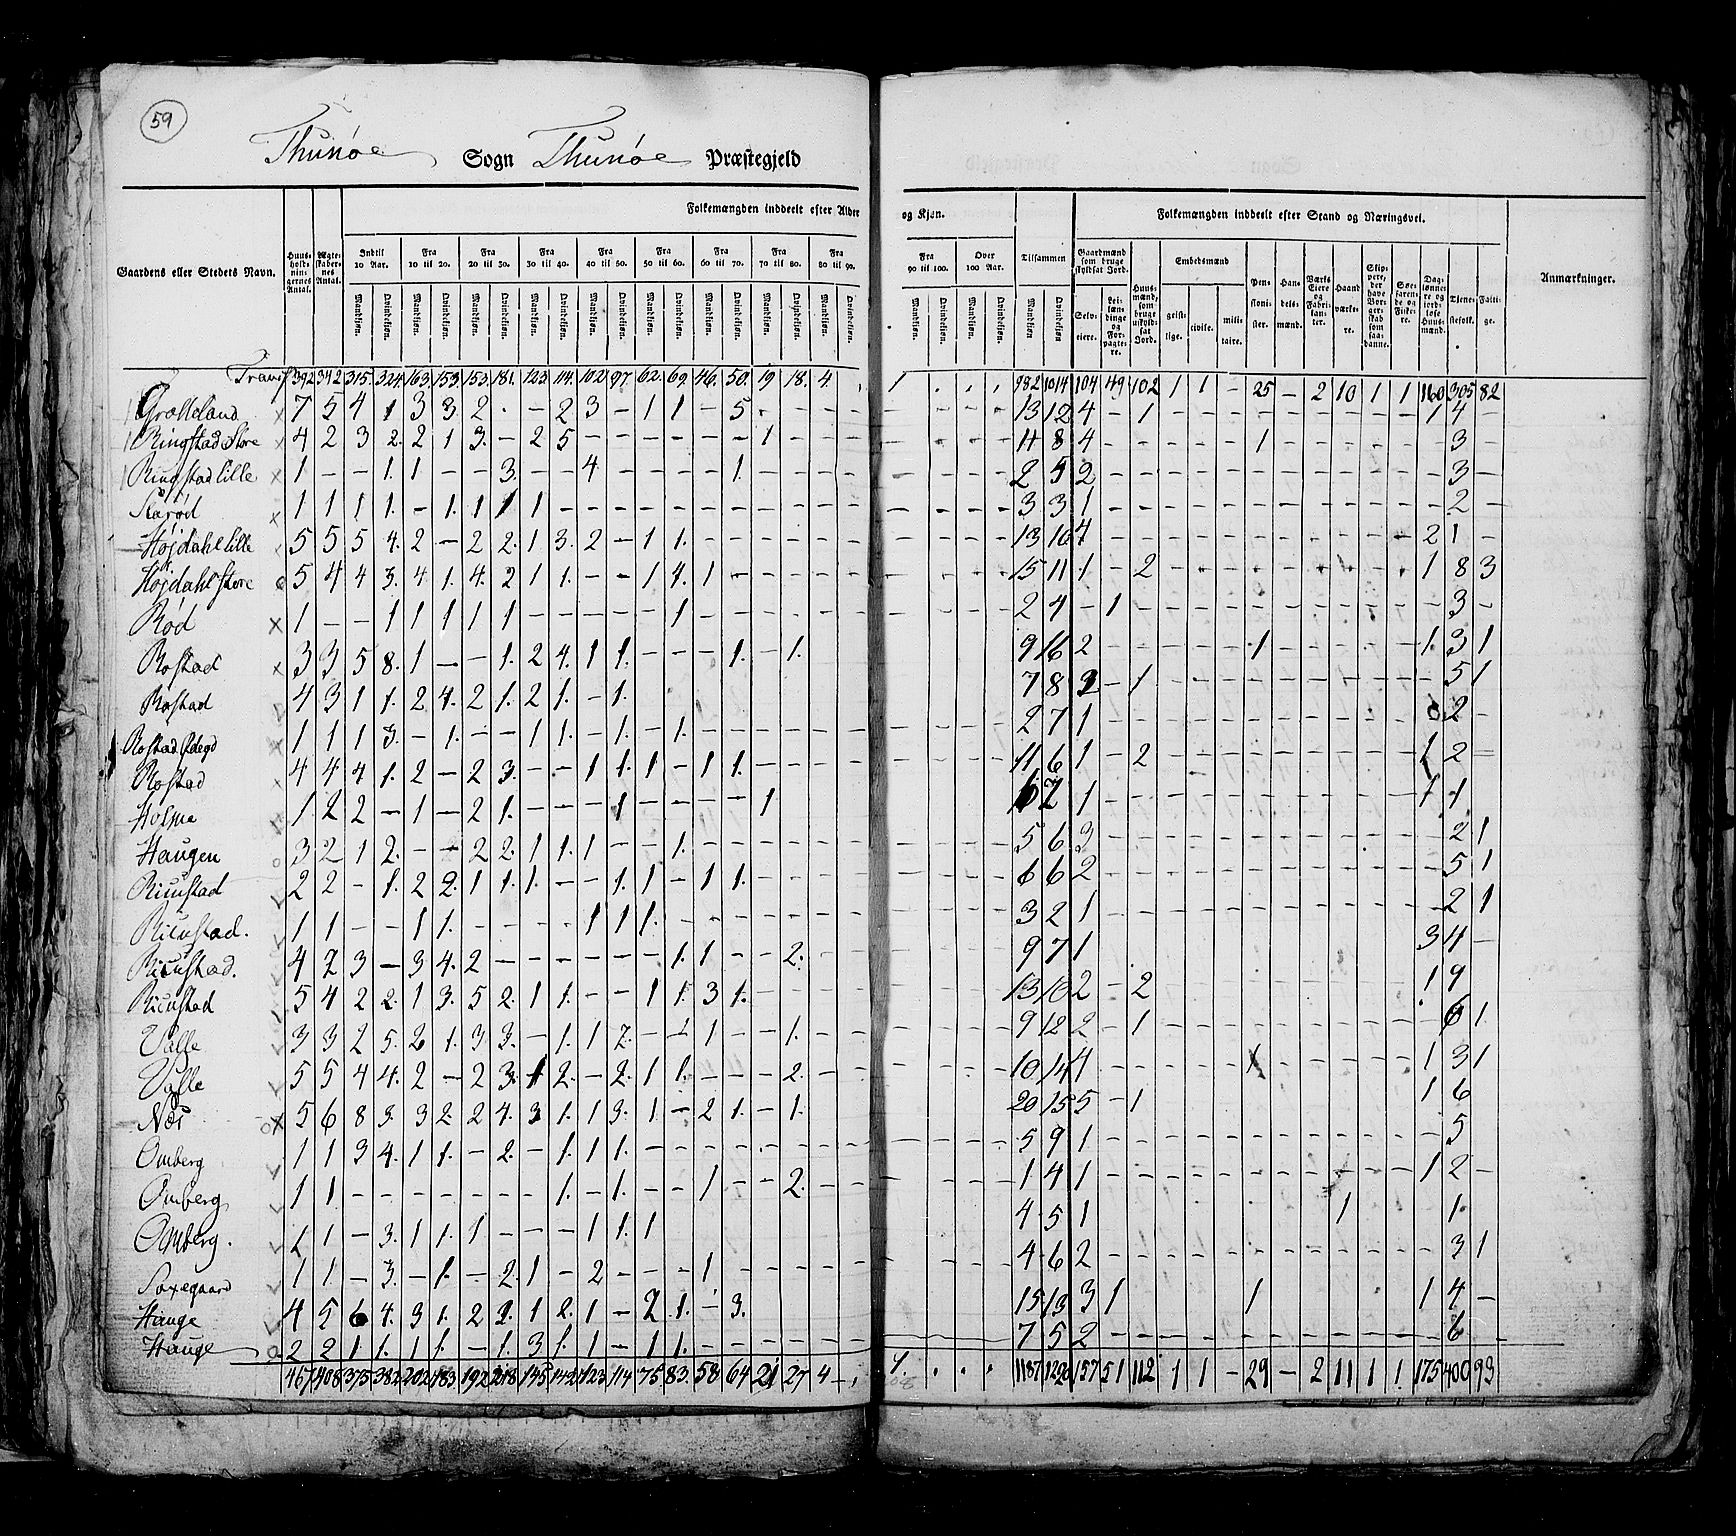 59
Thunøe Sogn Thunøe Præstegjeld
Gaardens eller Stedets Navn.
Huus-holdnin-gernes Antal.
Ægte-skaber-nes Antal.
Folkemængden inddeelt efter Alder og Kjøn.
Indtil 10 Aar.
Fra 10 til 20.
Fra 20 til 30.
Fra 30 til 40.
Fra 40 til 50.
Fra 50 til 60.
Fra 60 til 70.
Fra 70 til 80.
Fra 80 til 90.
Fra 90 til 100.
Over 100 Aar.
Tilsammen
Mandkjøn. Qvindekjøn.
Folkemængden inddeelt efter Stand og Næringsvei.
Gaardmænd som bruge skyldsat Jord.
Selv-eiere.
Lei-lændinge og For-pagtere.
Huus-mænd, som bruge uskyld-sat Jord.
Embedsmænd
geist-lige. civile. mili-taire.
Pen-sioni-ster.
Han-dels-mænd.
Værks Eiere og Fabri-kan-ter.
Haand værke-re.
Soe-farende og Fiskere.
Dag-lønne-re og jord-løse Huus-mænd.
Tjene-stefolk.
Fatti-ge.
Anmærkninger.
Transp 392 342 315. 324. 163. 153. 153. 181. 123 114. 102 97. 62. 69. 46. 50. 19 18. 4. 1 982 1014 104 49 102 1 1 - 25 - 2 10 1 1 160 305 82
Grælleland 7 5 4 1 3 3. 2 . - 2 3 - 1 1 - 5 13 12 4 - 1 1 4
Ringstad Store 4 2 3 2. 2 1 3. - 2 5 - - - - - - 1 11 8 4 1 3
Ringstad lille 1 - - 1. 1 - - 3. - - 4 1. 2 5 2 3
Starød 1 1 1 1. - 1. 1 1 1 3 3 1 2
Højdahl lille 5 5 5 4. 2 - 2 2. 1 3. 2 - 1 1. 13 10 4 2 1
Højdahl Store 5 4 4 3. 4 1. 4. 2 1 1. - - 1 4. 1 15 11 1 - 2 1 8 3
Rød 1 - - 1 1 1 1 1 - - - - - 1 2 4 - 1 3
Rostad 3 3 5 8. 1 - - 1. 2 4. 1 1. - - - 1. - 1. 9 16 2 1 1. 3 1
Rostad 4 3 1 1. 2 4. 2 1. 2 1. - 1. 7 8 3 - 1 5 1
Rostad Ødegd 1 1 1 3. - 1. - - 1 1. - 1. - 1. 2 7 1 2
Rostad 4 4 4 1. 2 - 2 3. - - 1 1. 1 - 1 1. 11 6 1 - 2 1 2
Holme 1 2 2 - 1 - 2 1. - - - 1 - - - - 1 6 2 1 1 1
Haugen 3 2 1 2. - - 2 2. 1 1. 1 - - 1. 5 6 3 2 1
Ricustad 2 2 - 1. 2 2. 1 1. 1. - - 1. 1 - 1 1. 6 6 2 5 1
Ricustad. 1 1 - - 1 1. - - - - 1 1 1. 3 2 1 2 1
Ricustad. 4 2 3 - 3 4. 2 - - - - - - 1. 1 - - 2. 9 7 1 3 4
Ricustad 5 4 2 2. 1 3. 5 2. 1 1. - - 1 1. 3 1. 13 10 2 - 2 1 9
Valle 3 3 2 5. 2 1. 3 3. - 1. 1 2. - 1 1 - - 1. 9 12 2 - 1 6 1
Valle 5 5 4 4. 2 - 2 3. 1 2. - 2. 1 1. - - - 2. 10 14 4 1 3 1
Næs 5 6 8 3. 3 2. 2 4. 3 1. 1 3. 1 - 2 1. - 1. 20 15 5 - 1 1 6
Omberg 1 1 3 4. 1 1. - 2. - 1. 1 1. 5 9 1 5
Omberg 1 1 - - - - - - - 1. - 1. - - 1 - - 2. 1 4 1 1 2
Omberg. 1 1 - 3. 1 1. 1 - - - 1 1. 1 4 5 1 1 1.
Saxegaard 1 1 - 3. - 1. - 2. 1 - 2 - - - 1 4 6 2 3 1
Hauge 4 5 6 4. 3 1. 2 2. 1 2. 1 - 2 1. - 3. 15 13 3 1 1 1 4
Hauge 2 2 1 1. 1 1. - 1. 3 1. 1 - 1 1. 7 5 2 6
467 408 375 382 202 183. 192 218. 145 142 123 114 75. 83. 58 64 21 27 4 - 1187 1220 157 51 112 1 1 - 29 - 2 11 1 1. 175 400 93